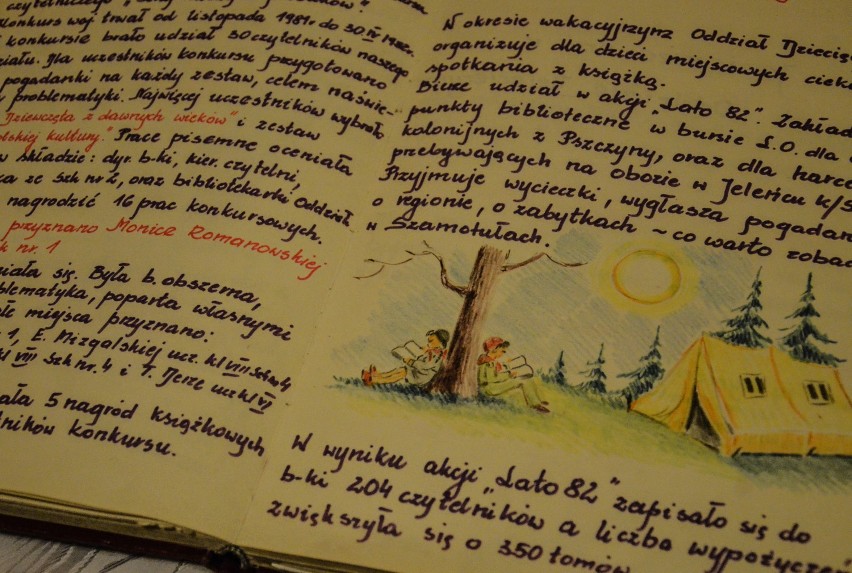 Konkurs woj trwał od listopada 1981 do 30 IV 1982
konkursie brało udział 50 czytelników naszego
działu. Dla uczestników konkursu przygotowano
pogadanki na każdy zestaw, celem naświe-
problematyki. Najwięcej uczestników wybrało
Dziewczęta z dawnych wieków" i zestaw
polskiej kultury." Prace pisemne oceniała
w składzie: dyr. b-ki, kier. czytelni,
ze Szk nr 2, oraz bibliotekarki Oddziału
nagrodzić 16 prac konkursowych.
przyznano Monice Romanowskiej
nr. 1
się. Była b. obszerna,
poparta własnymi
miejsca przyznano:
1, E. Mizgalskiej ucz. kl VIII Szk nr 4
kl VIII Szk nr. 4 i T. Jerze ucz kl VI
5 nagród książkowych
konkursu.
W okresie wakacyjnynz Oddział Dziecię
organizuje dla dzieci miejscowych ciek
spotkania z książką.
Bierze udział w akcji „Lato 82". Zakład
punkty biblioteczne w bursie L.O. dla
kolonijnych z Pszczyny, oraz dla harce
przebywających na obozie w Jeleńcu k/S
Przyjmuje wycieczki, wygłasza pogadan
o regionie, o zabytkach - co warto zobac
w Szamotułach.
W wyniku akcji „Lato 82" zapisało się do
b-ki 204 czytelników a liczba wypożyczeń
zwiększyła się o 350 tomów